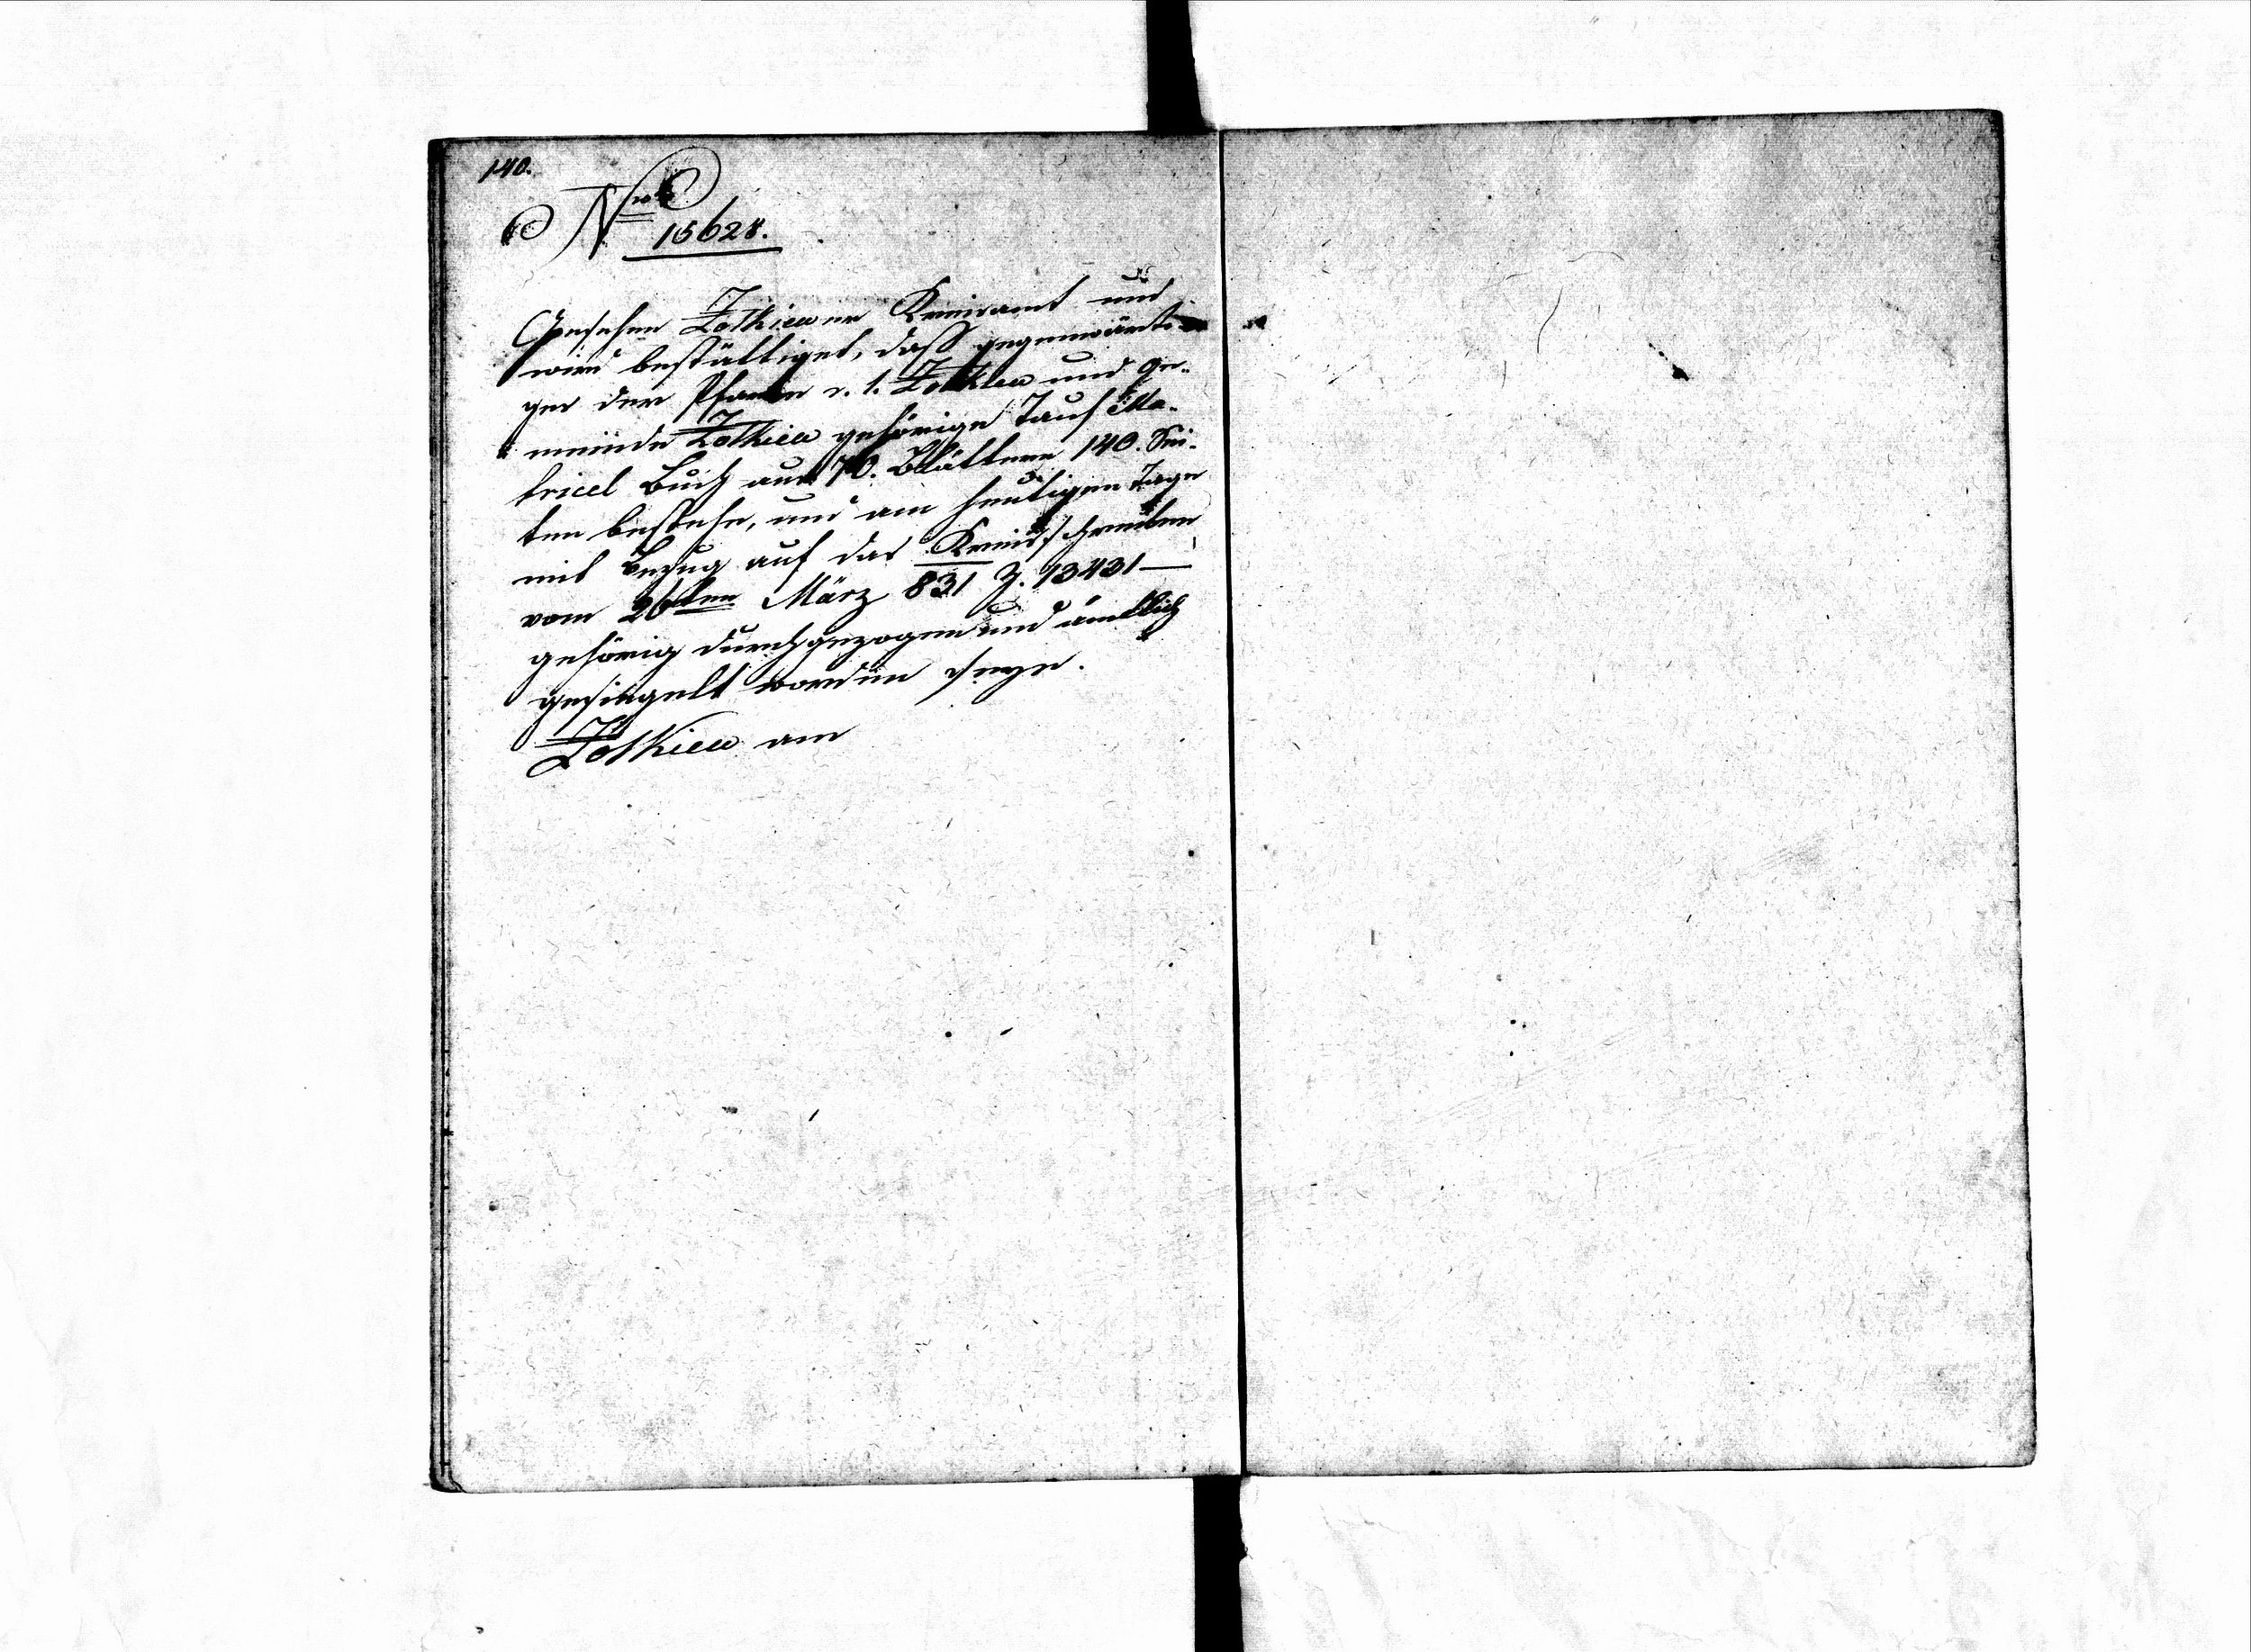 140.
Nro
15628.
Gesehen Zolkiewer Kreisamt und
wird bestättiget, daß gegenwärti-
ges der Pfarre r. l. Zolkiew und Ge-
meinde Zolkiew gehörige Tauf Ma-
tricel Buch aus 70. Blättern 140. Sei-
ten bestehe, und am heutigen Tage
mit Bezug auf das Kreisschreiben
vom 26ten März 831 Z. 13431 —
gehörig durchgezogen und ämtlich
gesiegelt worden seye.
Zolkiew am